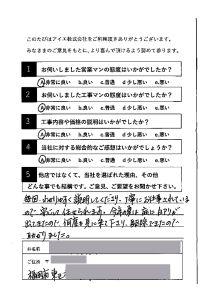 このたびはアイエ株式会社をご利用頂きありがとうございます。
みなさまのご意見をもとに、より喜んで頂けるよう努めて参ります。
1 お伺いしました営業マンの態度はいかがでしたか?
a.非常に良い b.良い c.普通 d.少し悪い e.悪い
2 お伺いしました工事マンの態度はいかがでしたか?
a.非常に良い b.良い c.普通 d.少し悪い e.悪い
3 工事内容や価格の説明はいかがでしたか?
a.非常に良い b.良い c.普通 d.少し悪い e.悪い
4 当社に対する総合的なご感想はいかがでしょうか?
a.非常に良い b.良い c.普通 d.少し悪い e.悪い
5 他店ではなくて、当社を選ばれた理由、その他
どんな事でも結構です。ご意見、ご要望をお聞かせ下さい。
毎回、わかりやすく説明してくださり、丁寧にお仕事されている
ので 安心して任せられます。今年の夏は 前に
出てきたので、何度も見に来て下さり、駆除できましたので
お名前
ご住所
福岡市 東区